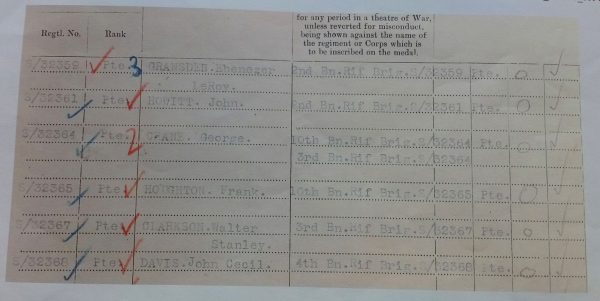 for any period in a theatre of War,
unless reverted for misconduct,
being shown against the name of
the regiment or Corps which is
to be inscribed on the medal.
Regtl. No. Rank
S/32359 Pte. 3 GRAWSDEN.Ebenezer 2nd Bn.Rif Brig.S/32359 Pte.
LeRoy.
S/32361 Pte. HOWITT. John. 2nd Bn.Rif Brig.S/32361 Pte.
S/32364 Pte. 2 George. 10th Bn.Rif Brig.S/32364 Pte.
3rd Bn.Rif Brig.S/32364
S/32365 Pte. HOUGHTON. Frank. 10th Bn.Rif Brig.S/32365 Pte.
S/32367 Pte. CLARKSON.Walter 3rd Bn.Rif Brig.S/32367 Pte.
Stanley.
S/32368 Pte. DAVIS.John Cecil. 4th Bn.Rif Brig.S/32368 Pte.